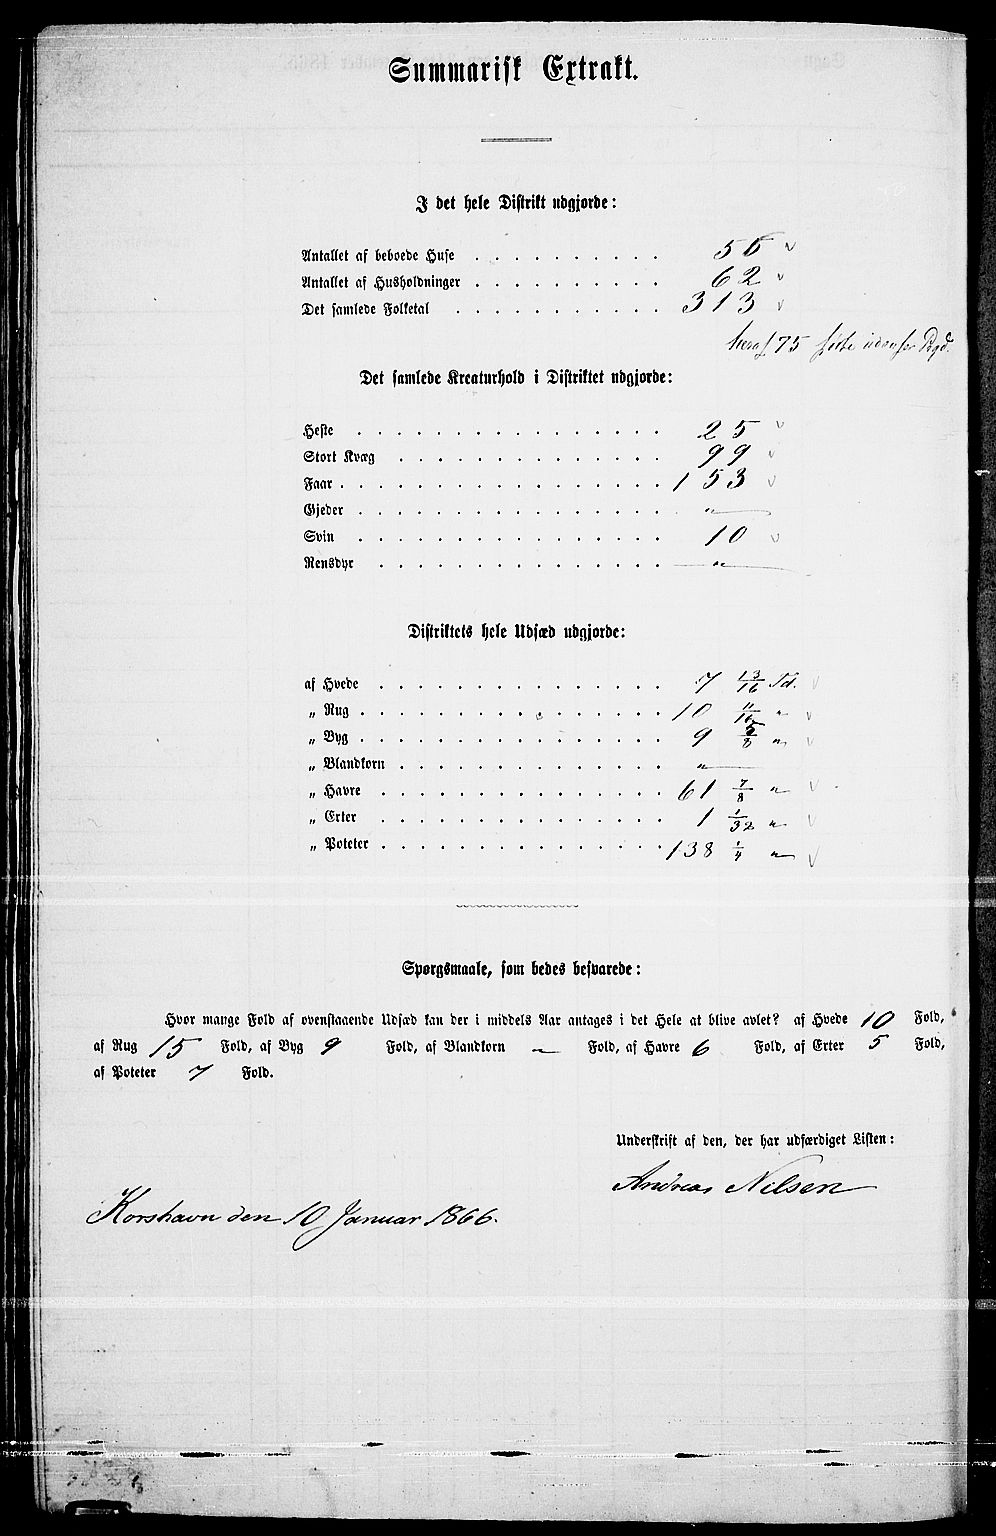 Summarisk Extrakt.
I det hele Distrikt udgjorde:
Antallet af beboede Huse . . . . . . . . . . 56
Antallet af Husholdninger . . . . . . . . . . 62
Det samlede Folketal . . . . . . . . . . . 313
heraf 75 fødte udenfor Pgd.
Det samlede Kreaturhold i Distriktet udgjorde:
Heste . . . . . . . . . . . . . . . . 25
Stort Kvæg . . . . . . . . . . . . . . 99
Faar . . . . . . . . . . . . . . . . . 153
Gjeder . . . . . . . . . . . . . . . . "
Svin . . . . . . . . . . . . . . . . 10
Rensdyr . . . . . . . . . . . . . . . "
Distriktets hele Udsæd udgjorde:
af Hvede . . . . . . . . . . . . . . . 7 13/16 Td.
„ Rug . . . . . . . . . . . . . . . . 10 11/16 "
„ Byg . . . . . . . . . . . . . . . . 9 5/8 "
„ Blandkorn . . . . . . . . . . . . . . "
„ Havre . . . . . . . . . . . . . . . 61 7/8 "
„ Erter . . . . . . . . . . . . . . . 1 1/32 "
„ Poteter . . . . . . . . . . . . . . . 138 1/4 "
Spørgsmaale, som bedes besvarede:
Hvor mange Fold af ovenstaaende Udsæd kan der i middels Aar antages i det Hele at blive avlet? af Hvede 10 Fold,
af Rug 15 Fold, af Byg 9 Fold, af Blandkorn — Fold, af Havre 6 Fold, af Erter 5 Fold,
af Poteter 7 Fold.
Underskrift af den, der har udfærdiget Listen:
Andreas Nilsen
Korshavn den 10 Januar 1866.